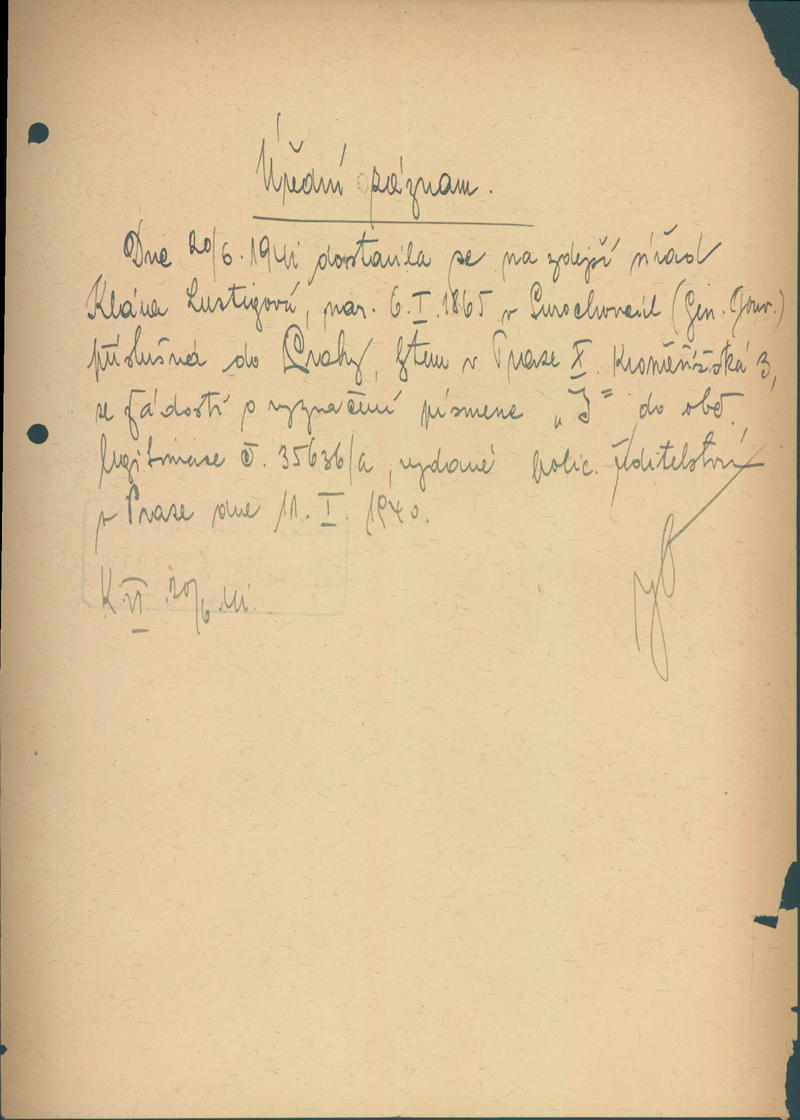 Úřední záznam.
Dne 20/6. 1941 dostavila se na zdejší úřad
Klára Lustigová, nar. 6. I. 1865 v (Gen. Gouv.)
příslušná do Prahy, bytem v Praze X. Kroměřížská 3,
se žádostí o vyznačení písmene „J" do obč.
legitimace č. 35636/a, vydané polic. ředitelstvím
v Praze dne 11. I. 1940.
K VI 20/6 41.